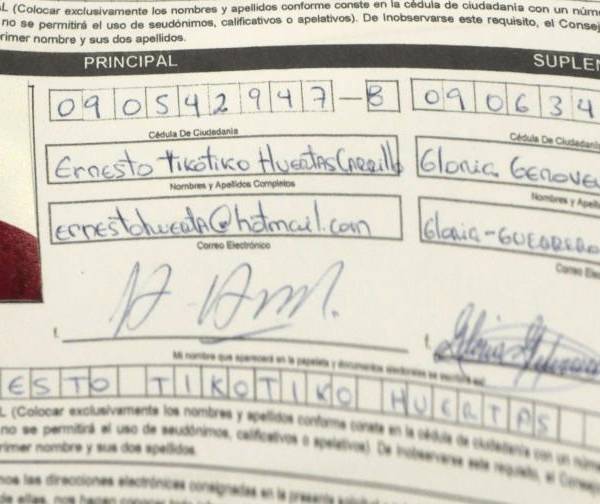 L (Colocar exclusivamente los nombres y apellidos conforme conste en la cédula de ciudadanía con un núm
no se permitirá el uso de seudónimos, calificativos o apelativos). De Inobservarse este requisito, el Consej
rimer nombre y sus dos apellidos.
PRINCIPAL
SUPLEN
090542947-8
090634
Cédula De Ciudadanía
Cédula De Ciudadanía
Ernesto Tikotiko Huertas Carrillo
Gloria Genove
Nombres y Apellidos Completos
Nombres y Apelli
ernestohuerta@hotmail.com
Gloria-Guerrero
Correo Electrónico
Correo Elec
f.
f.
Mi nombre que aparecerá en la papeleta y documentos electorales se escribirá así:
ESTO TIKOTIKO HUERTAS
L (Colocar exclusivamente los nombres y apellidos conforme conste en la cédula de ciudadanía con un núm
no se permitirá el uso de seudónimos, calificativos o apelativos). De Inobservarse este requisito, el Conse
rimer nombre y sus dos apellidos.
mos las direcciones electrónicas consignadas en la presente solicitud
de ellas, nos hagan conocer